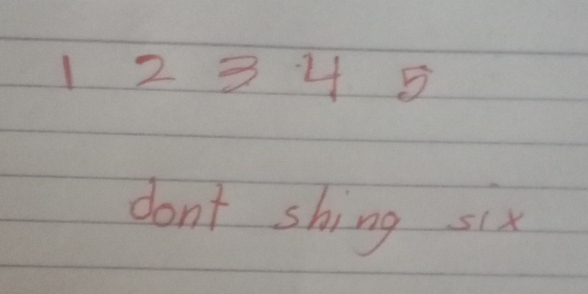 1 2 3 4 5
dont shing six